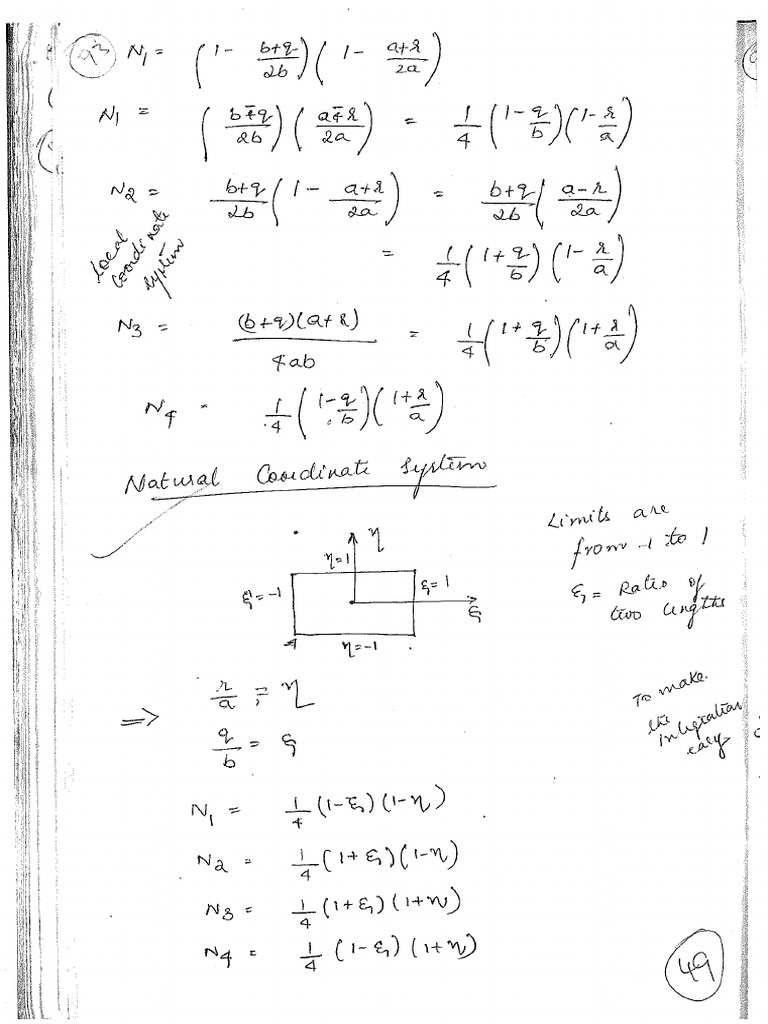 93
N1 = (1 - b+q/2b) (1 - a+r/2a)
N1 = (b-q/2b) (a-r/2a) = 1/4 (1 - q/b) (1 - r/a)
N2 = b+q/2b (1 - a+r/2a) = b+q/2b (a-r/2a)
= 1/4 (1 + q/b) (1 - r/a)
Local
Coordinate
System
N3 = (b+q)(a+r)/4ab = 1/4 (1 + q/b) (1 + r/a)
N4 = 1/4 (1 - q/b) (1 + r/a)
Natural Coordinate System
η
η=1
ξ=-1
ξ=1
ξ
η=-1
Limits are
from -1 to 1
ξ = Ratio of
two lengths
⇒ r/a = η
q/b = ξ
To make
the
integration
easy
N1 = 1/4 (1-ξ) (1-η)
N2 = 1/4 (1+ξ) (1-η)
N3 = 1/4 (1+ξ) (1+η)
N4 = 1/4 (1-ξ) (1+η)
49